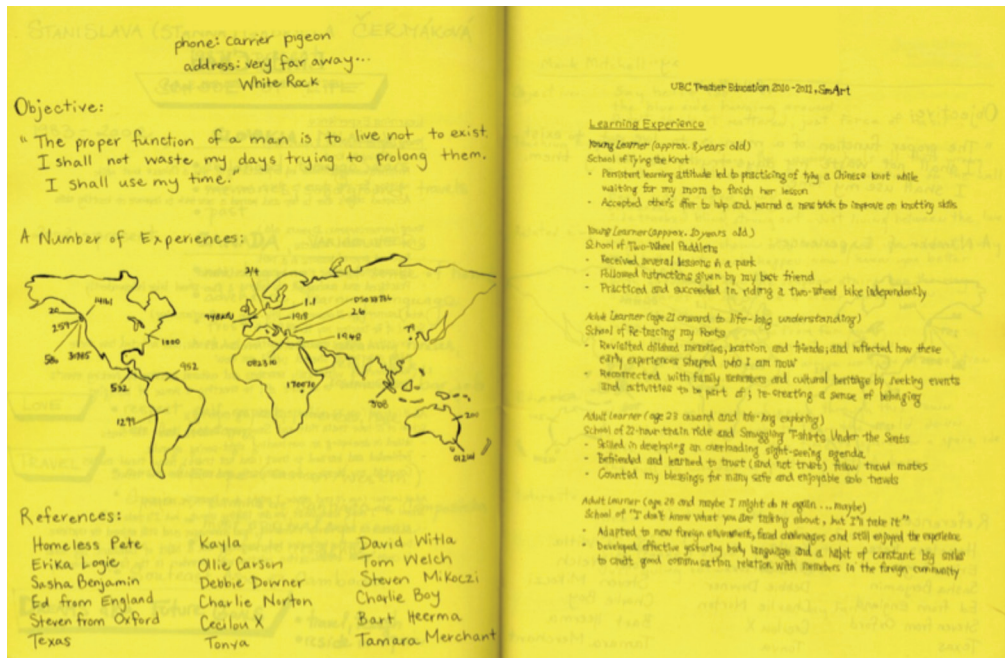 STANISLAVA
ČERMÁKOVÁ
phone: carrier pigeon
address: very far away...
White Rock
Objective:
"The proper function of a man is to live not to exist.
I shall not waste my days trying to prolong them.
I shall use my time."
A Number of Experiences:
214
1461
20
259
1.1
1918
26
1940
30765
1000
582
952
1299
700
200
References:
Homeless Pete
Erika Logie
Sasha Benjamin
Ed from England
Steven from Oxford
Texas
Kayla
Ollie Carson
Debbie Downer
Charlie Norton
Cecilou X
Tonya
David Witla
Tom Welch
Steven Mikoczi
Charlie Boy
Bart Heerma
Tamara Merchant
UBC Teacher Education 2010-2011, SmArt
Learning Experience
Young Learner (approx. 8 years old)
School of Tying the Knot
- Persistent learning attitude led to practicing of tying a Chinese knot while
waiting for my mom to finish her lesson
- Accepted other's offer to help and learned a new trick to improve on knotting skills
Young Learner (approx. 10 years old)
School of Two-Wheel Paddlers
- Received several lessons in a park
- Followed instructions given by my best friend
- Practiced and succeeded in riding a two-wheel bike independently
Adult Learner (age 21 onward to life-long understanding)
School of Re-tracing my Roots
- Revisited childhood memories, location and friends, and reflected how these
early experiences shaped who I am now
- Reconnected with family members and cultural heritage by seeking events
and activities to be part of; re-creating a sense of belonging
Adult Learner (age 23 onward and life-long exploring)
School of 22-hour train ride and Smuggling T-shirts Under the Seats
- Skilled in developing an overloading sight-seeing agenda
- Befriended and learned to trust (and not trust) fellow travel mates
- Counted my blessings for many safe and enjoyable solo travels
Adult Learner (age 28 and maybe I might do it again ... maybe)
School of "I don't know what you are talking about, but I'll take it"
- Adapted to new foreign environment, faced challenges and still enjoyed the experience
- Developed effective gesturing body language and a habit of constant big smiles
to create good communication relation with members in the foreign community